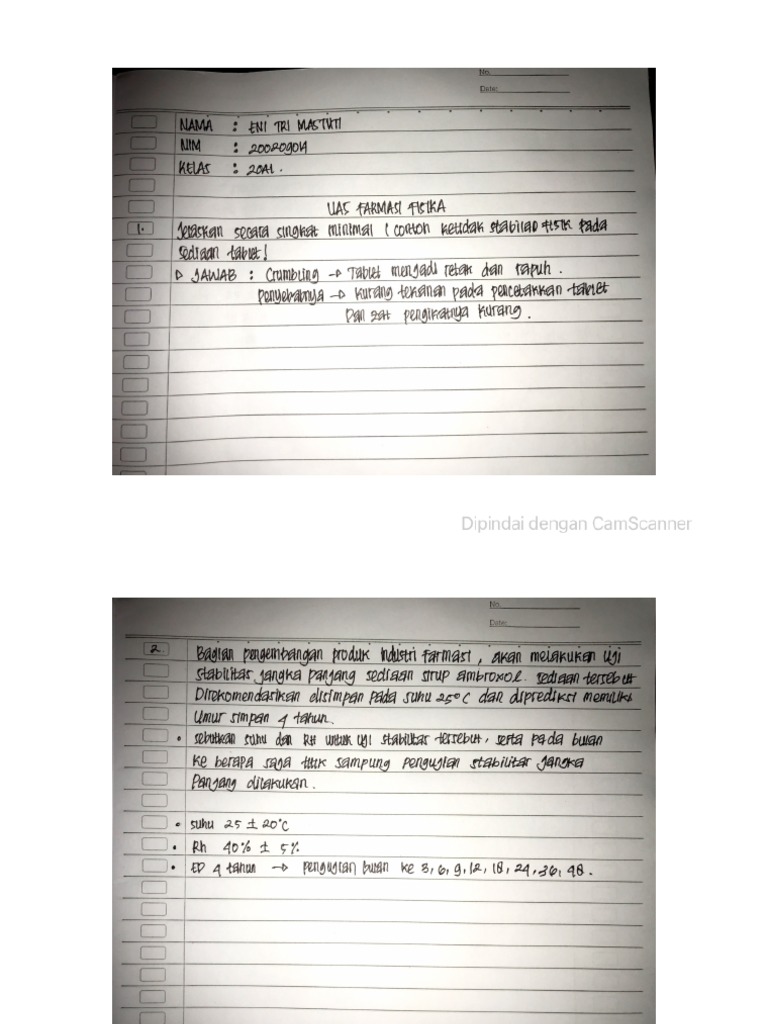 No.
Date:
NAMA : ENI TRI MASTUTI
NIM : 20020901
KELAS : 20A1.
UAS FARMASI FISIKA
1. Jelaskan secara singkat minimal 1 contoh ketidak stabilan fisik pada
sediaan tablet!
▷ JAWAB : Crumbling → Tablet menjadi retak dan rapuh.
penyebabnya → kurang tekanan pada pencetakkan tablet
Dan zat pengikatnya kurang.
Dipindai dengan CamScanner
No.
Date:
2. Bagian pengembangan produk industri farmasi, akan melakukan uji
stabilitas jangka panjang sediaan sirup ambroxol. sediaan tersebut
Direkomendasikan disimpan pada suhu 25°C dan diprediksi memiliki
Umur simpan 4 tahun.
• sebutkan suhu dan RH untuk uji stabilitas tersebut, serta pada bulan
ke berapa saja titik sampung pengujian stabilitas jangka
Panjang dilakukan.
• suhu 25 ± 20°C
• Rh 40% ± 5%
• ED 4 tahun → pengujian bulan ke 3, 6, 9, 12, 18, 24, 36, 48.